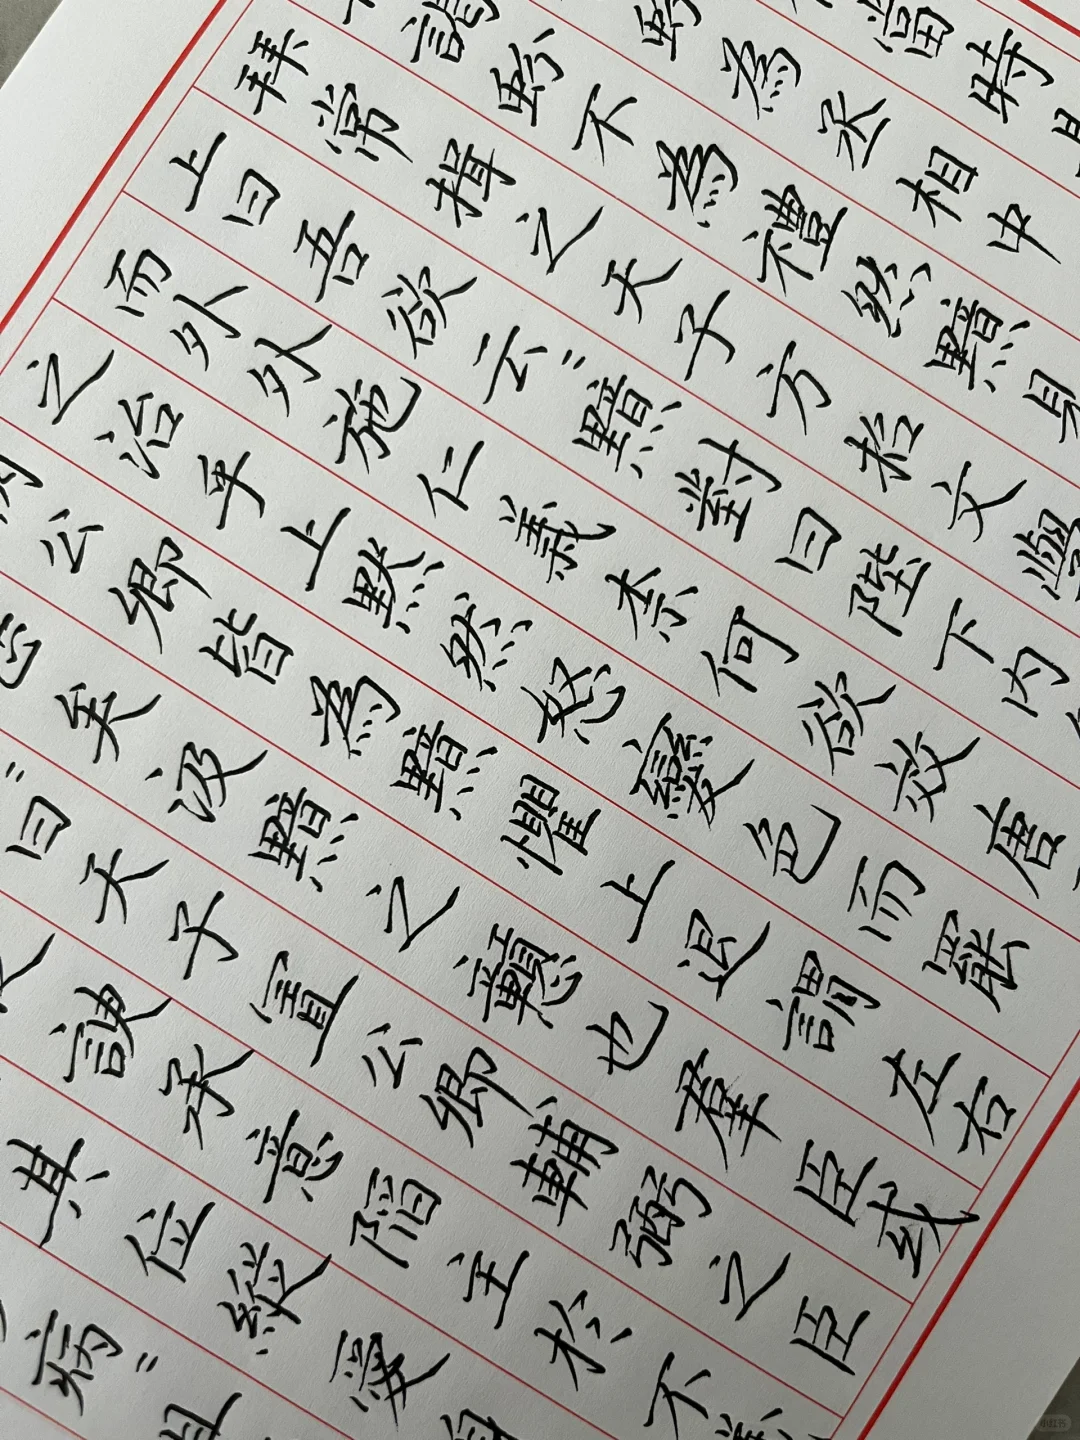 當時
蚡為丞相中
謁蚡不為禮然黯見
拜常揖之天子方招文學
上曰吾欲云〻黯對曰陛下內
而外外施仁義柰何欲效唐
之治乎上默然怒變色而罷
公卿皆為黯懼上退謂左右
矣汲黯之戇也羣臣或
〻曰天子置公卿輔弼之臣
諛承意陷主於不義
其位縱愛身
病〻且